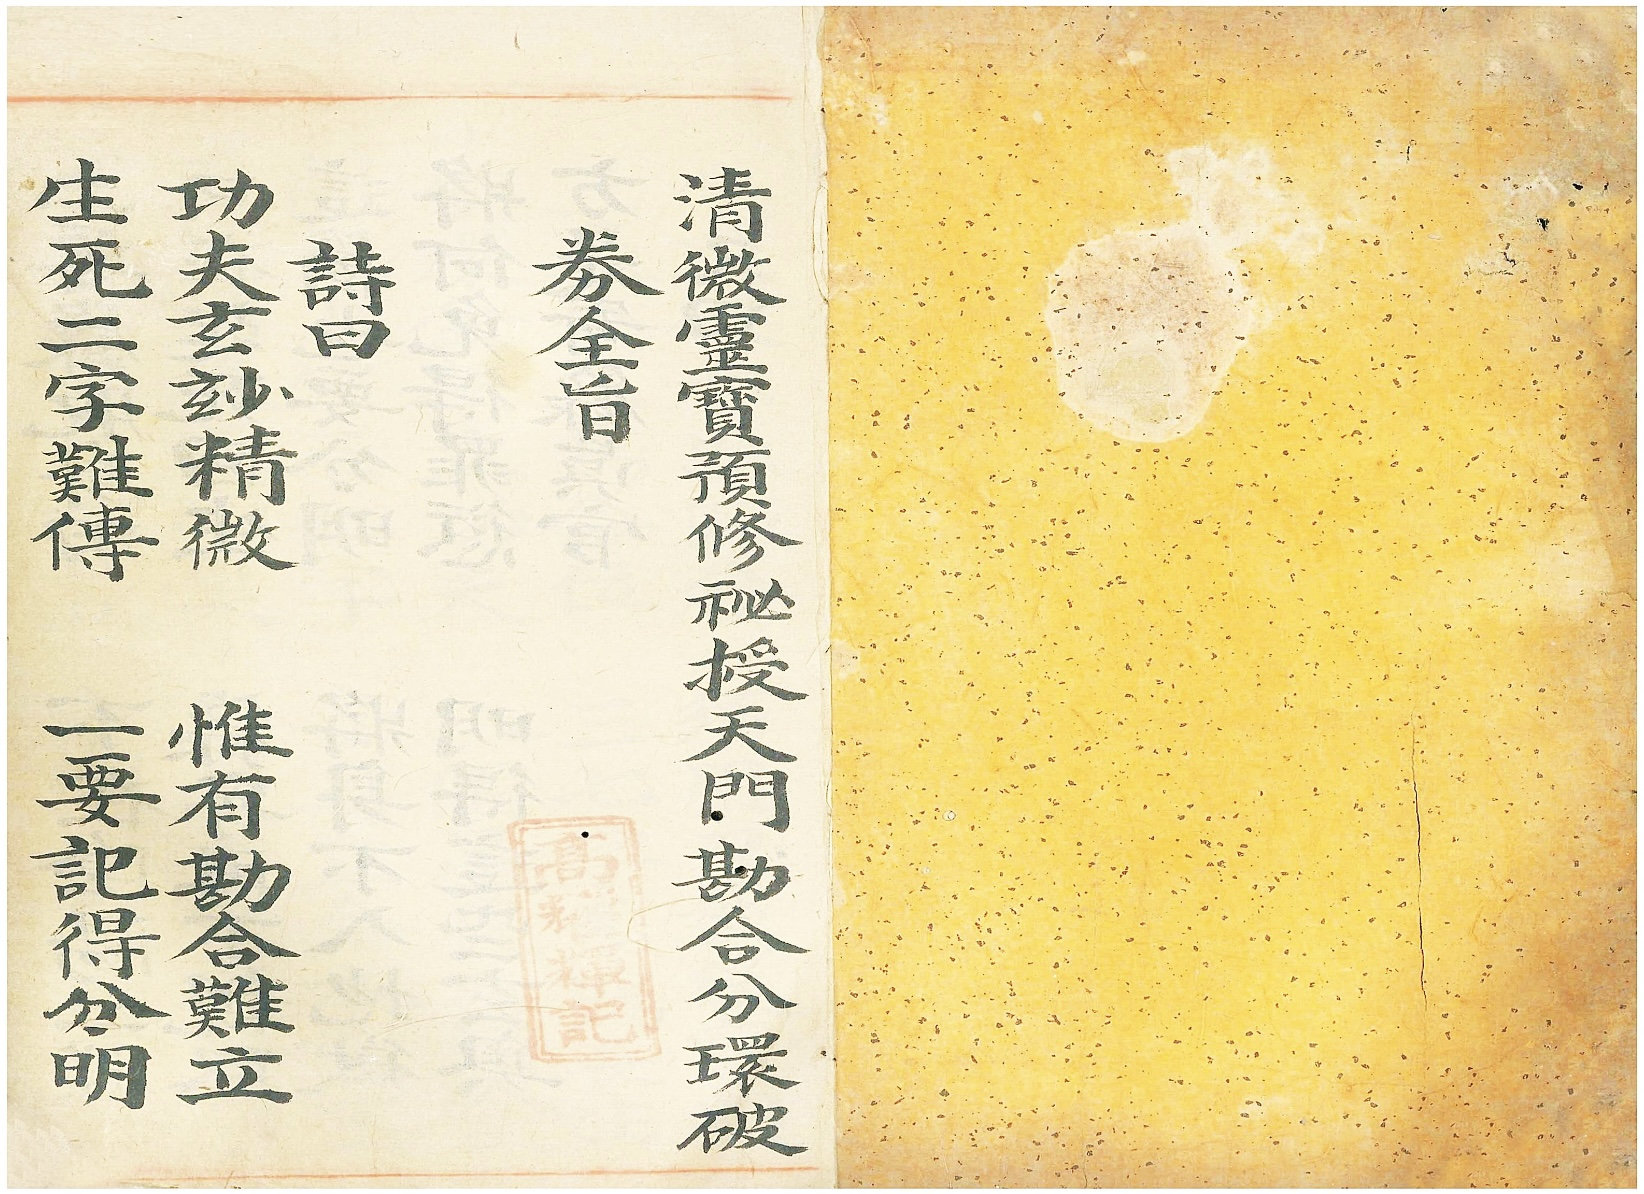 清微靈寶預修祕授天門勘合分環破
券全旨
詩曰
功夫玄妙精微　惟有勘合難立
生死二字難傳　一要記得分明